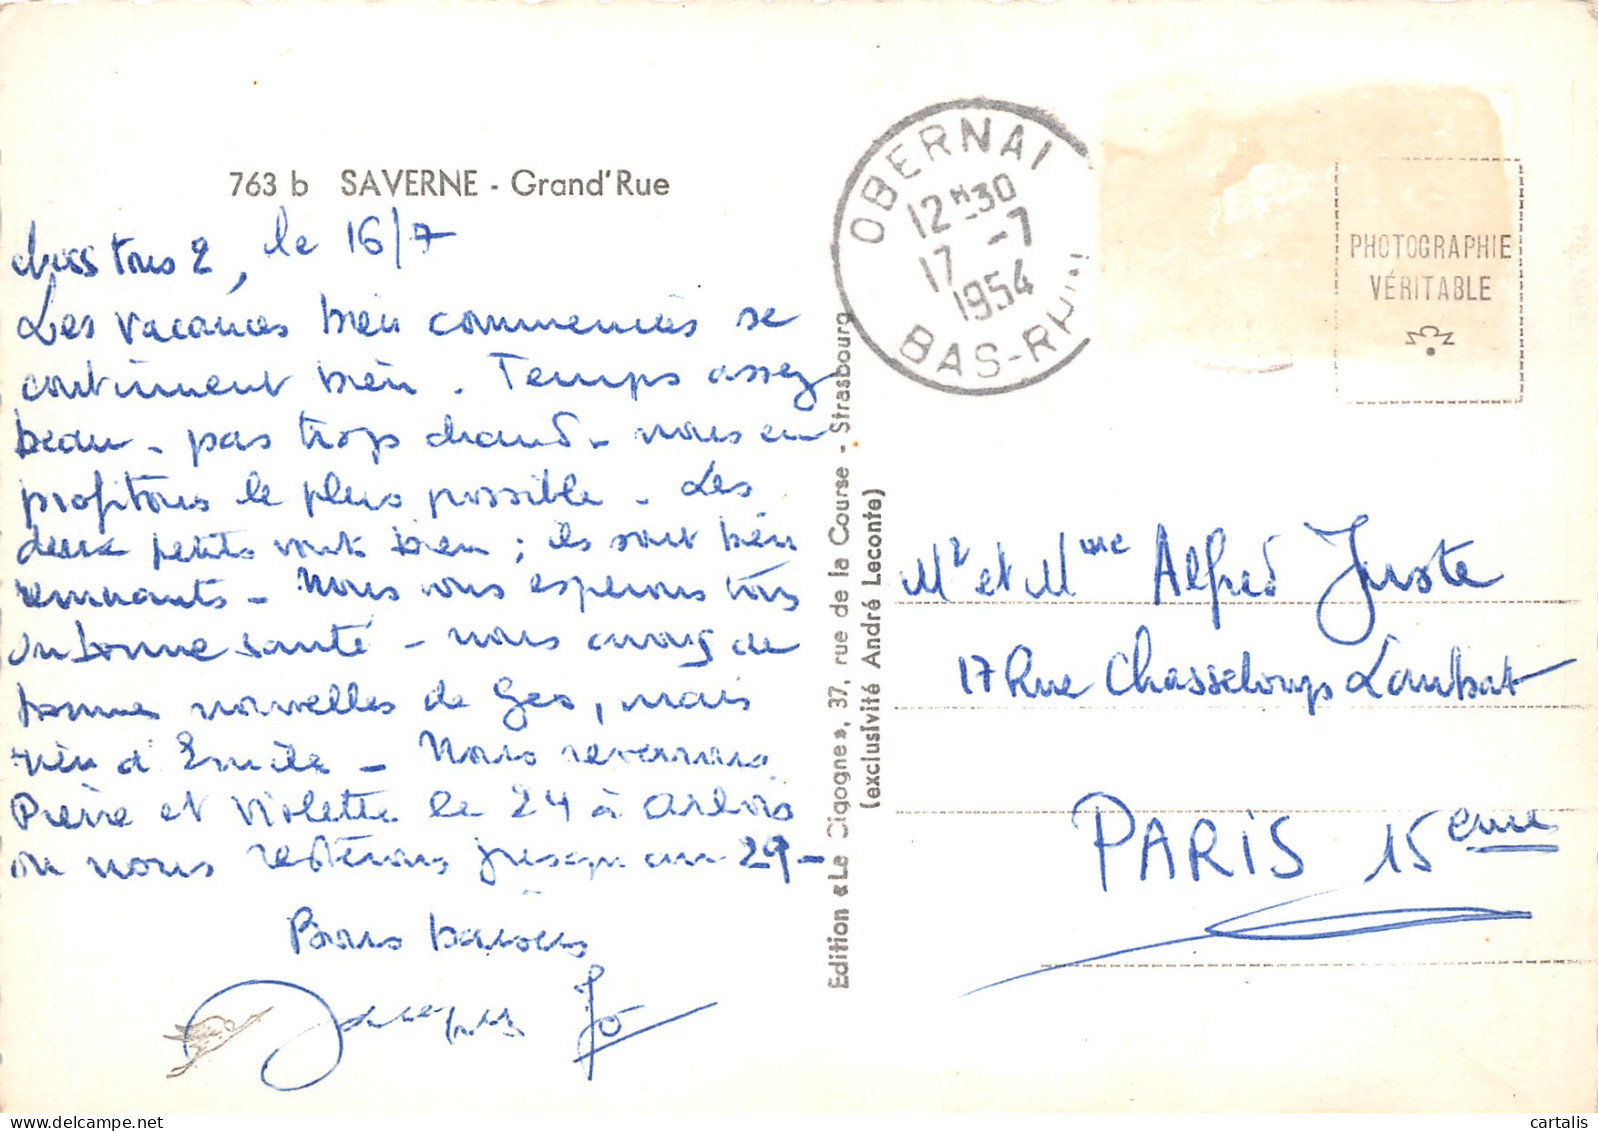 763 b SAVERNE - Grand'Rue
tous 2, le 16/7
Les vacances bien commencées se
continuent bien. Temps assez
beau - pas trop chaud - nous en
profitons le plus possible - Les
deux petits vont bien ; ils sont bien
remuants - Nous vous espérons tous
en bonne santé - nous avons de
bonnes nouvelles de Geo, mais
rien d'Emile - Nous reverrons
Pierre et Violette le 24 à Arbois
où nous resterons jusqu'au 29 -
Bons baisers
Jacques Jo
Edition «La Cigogne», 37, rue de la Course - Strasbourg
(exclusivité André Leconte)
OBERNAI
12 H 30
17 -7
1954
BAS-RHIN
PHOTOGRAPHIE
VÉRITABLE
Mr et Mme Alfred Juste
17 Rue Chasseloup Laubat
PARIS 15eme
cartalis